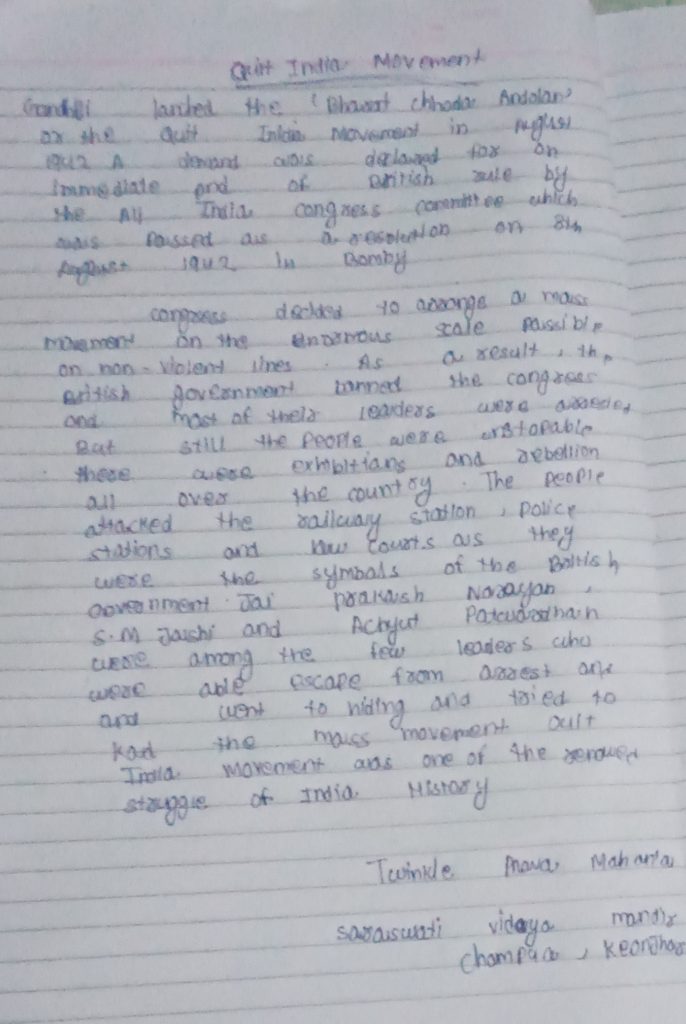 Quit India Movement
Gandhi lanched the 'Bharat chhoda Andolan'
or the Quit India Movement in August
1942 A demand was declared for an
immediate end of British rule by
the All India congress committee which
was passed as a resolution on 8th
August 1942 in Bomby
congress decided to arrange a mass
movement on the enormous scale passible
on non-violent lines. As a result, the
British government banned the congress
and most of their leaders were arrested
But still the people were unstopable
there were exhibitians and rebellion
all over the country. The people
attacked the railway station, police
stations and law courts as they
were the symbols of the British
Government. Jai prakash Narayan,
S.M Joshi and Achyut Patwardhan
were among the few leaders who
were able escape from arrest and
and went to hiding and tried to
the mass movement Quit
India movement was one of the renowed
struggle of India History
Twinkle Mahanta
saraswati vidaya mandir
champua, Keonjhar